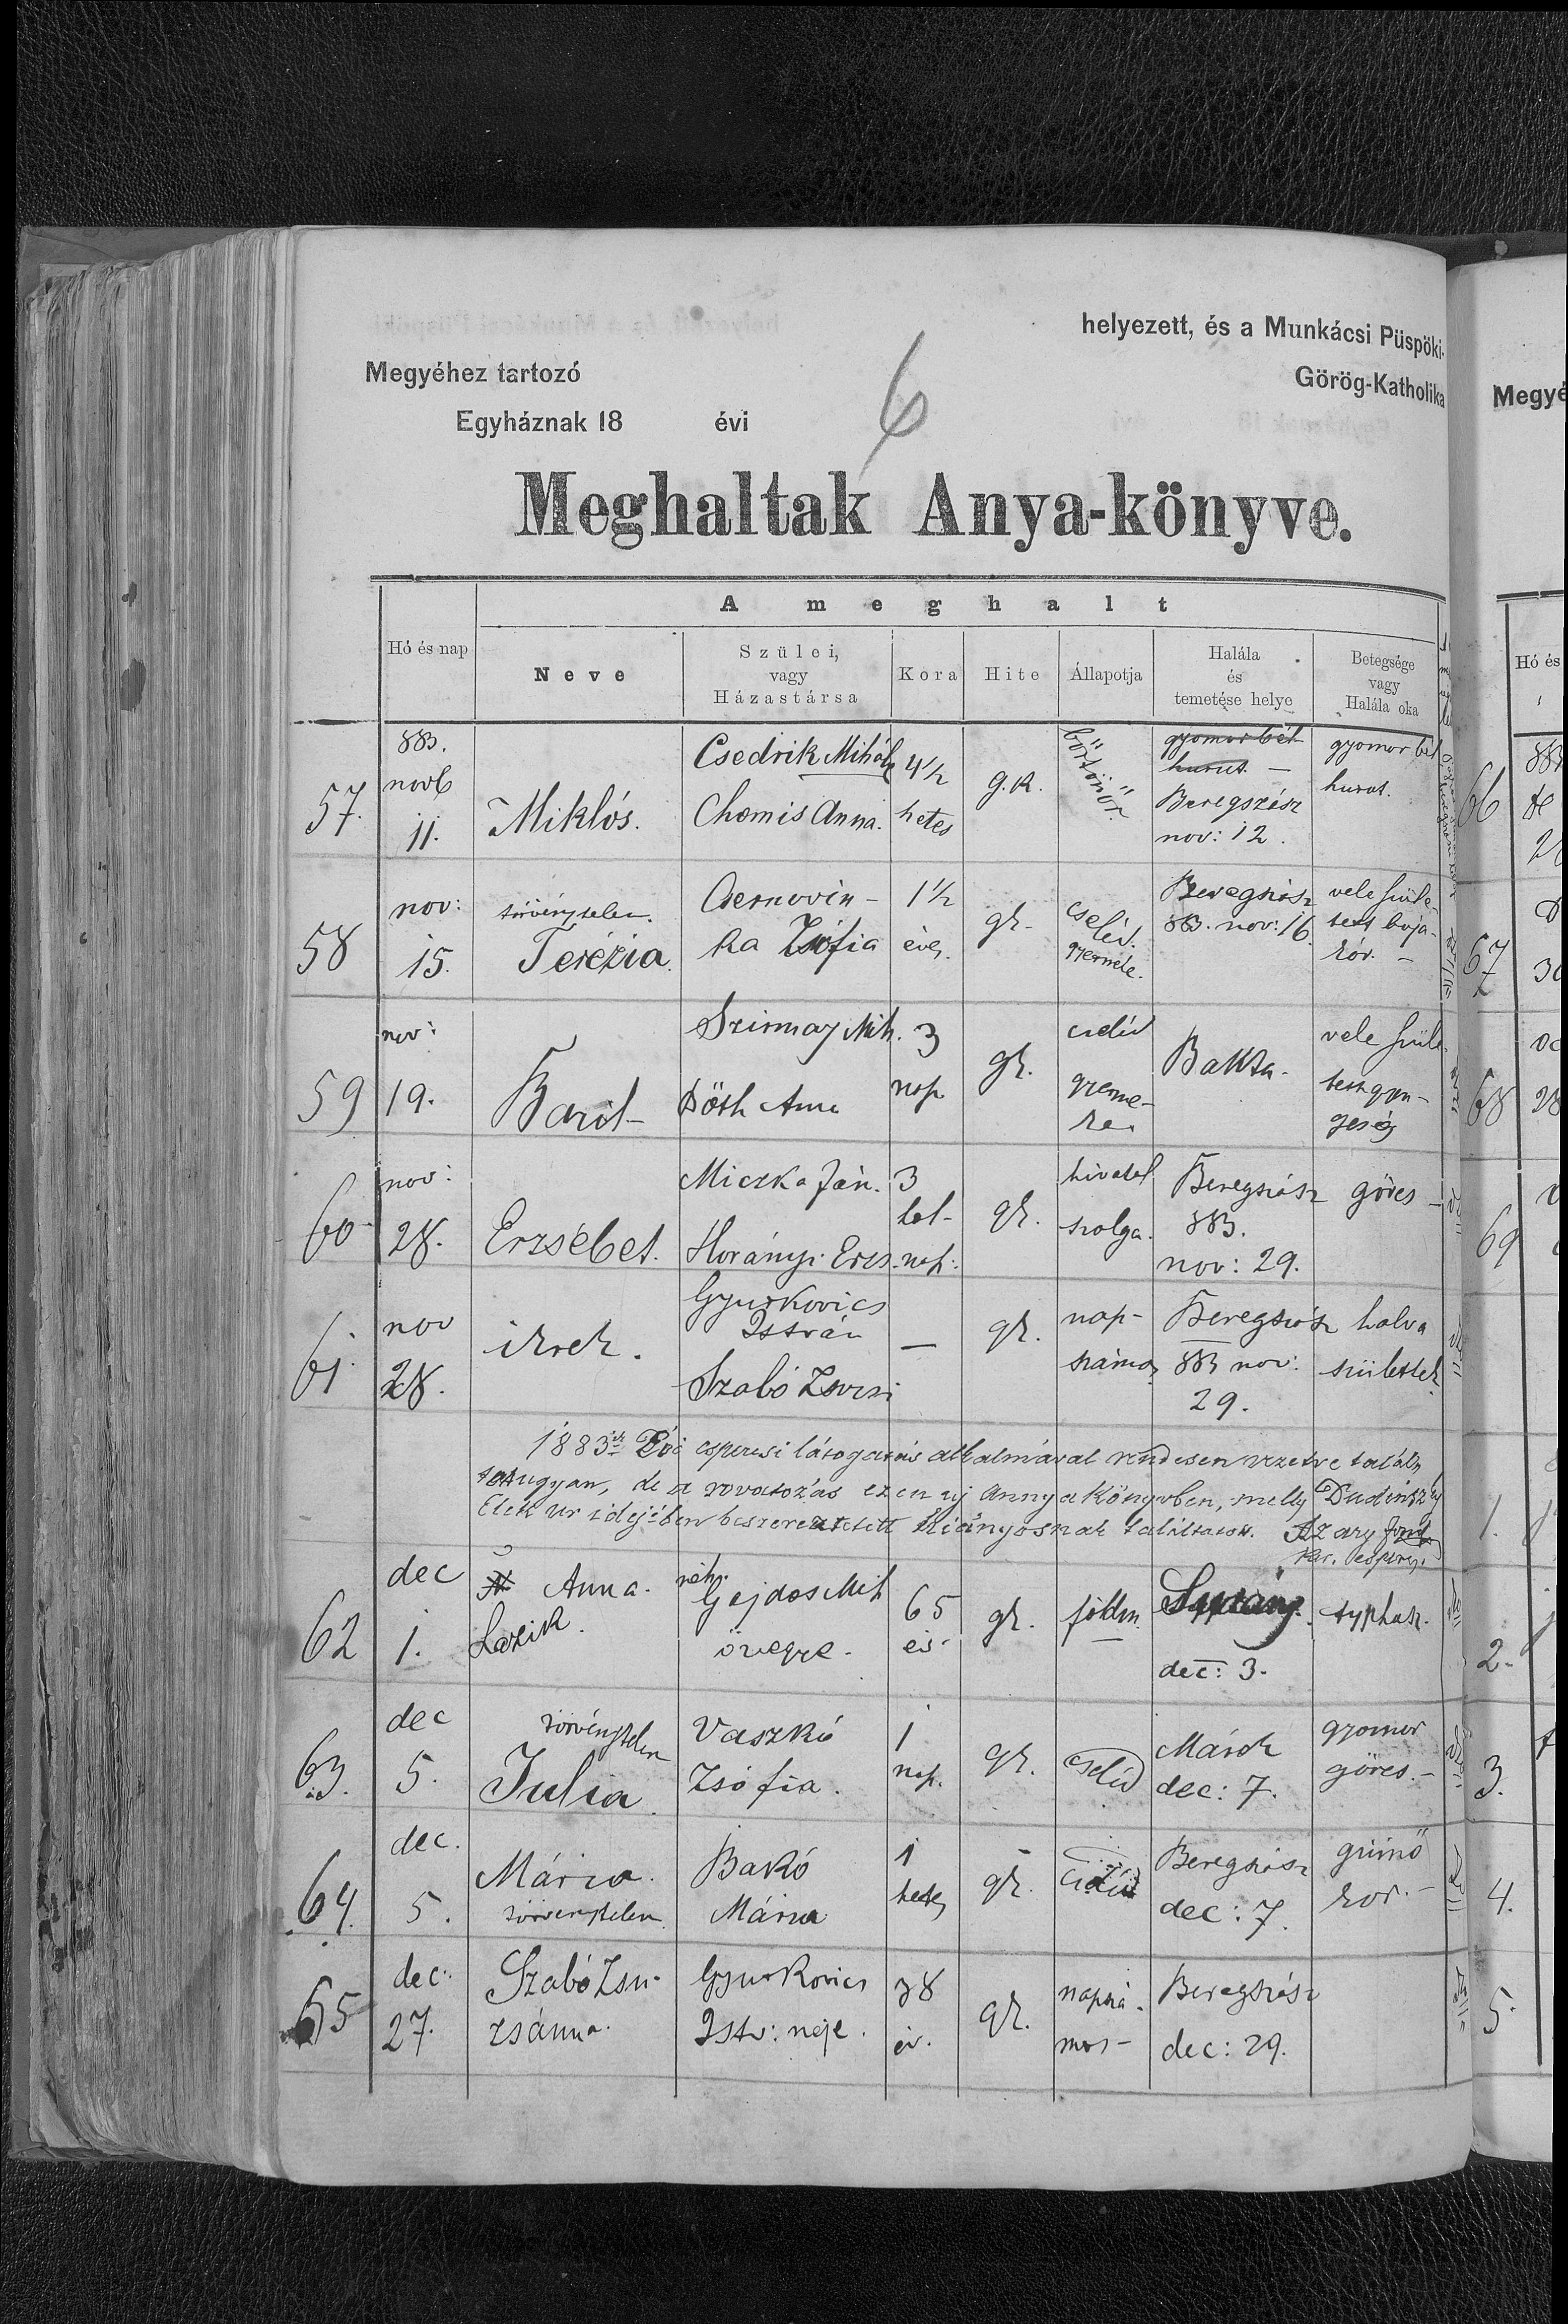 helyezett, és a Munkácsi Püspöki-
Megyéhez tartozó
Görög-Katholika
Egyháznak 18 évi
6
Meghaltak Anya-könyve.
A meghalt
Hó és nap
Neve
Szülei,
vagy
Házastársa
Kora
Hite
Állapotja
Halála
és
temetése helye
Betegsége
vagy
Halála oka
57.
883.
novb
11.
Miklós.
Csedrik Mihály
Chomis Anna.
4 1/2
hetes
g.k.
börtönőr.
gyomor bél
hurut. –
Beregszász
nov: 12.
gyomor bél
hurut.
58
nov:
15.
törvénytelen.
Terézia.
Csernovin-
ka Zsófia
1 1/2
éves.
gk.
cseléd.
gyermeke.
Beregszász
883. nov: 16.
vele szüle-
tett buja-
kór. –
59
nov:
19.
Bazil
Szirmay Mih.
Tóth Anna
3
nap
gk.
cseléd
gyerme-
ke.
Bakta.
vele szüle-
tett gyn-
geség
60
nov:
28.
Erzsébet.
Miczka Ján.
Horányi Erzs.
3
hol-
nap:
gk.
hivatal
szolga.
Beregszász
883.
nov: 29.
görcs –
61.
nov
28.
ikrek.
Gyurkovics
István
Szabó Zsuzsi
—
gk.
nap-
számos
Beregszász
883 nov:
29.
halva
születtek
1883ik Évi esperesi látogatás alkalmával rendesen vezetve talál-
tatott ugyan, de a rovatozás ezen uj Annyakönyvben, melly Dudinszky
Elek ur idejében beszereztetett hiányosnak találtatott.
ker. esperes.
62
dec
1.
Anna.
Lazik.
néh.
Gajdos Mih
özvegye.
65
év.
gk.
földm.
dec: 3.
typhus.
63.
dec
5.
törvénytelen
Julia.
Vaszkó
Zsófia.
1
nap.
gk.
cseléd
Márok
dec: 7.
gyomor
görcs. –
64.
dec.
5.
Mária.
törvénytelen
Bakó
Mária
1
hetes
gk.
cseléd
Beregszász
dec: 7.
gümő
kor. –
65
dec:
27.
Szabó Zsu-
zsánna.
Gyurkovics
Istv: neje.
38
év.
gk.
napszá-
mos –
Beregszász
dec: 29.
Megyé
Hó és
66
67
68
28
69
1.
2.
3.
4.
5.